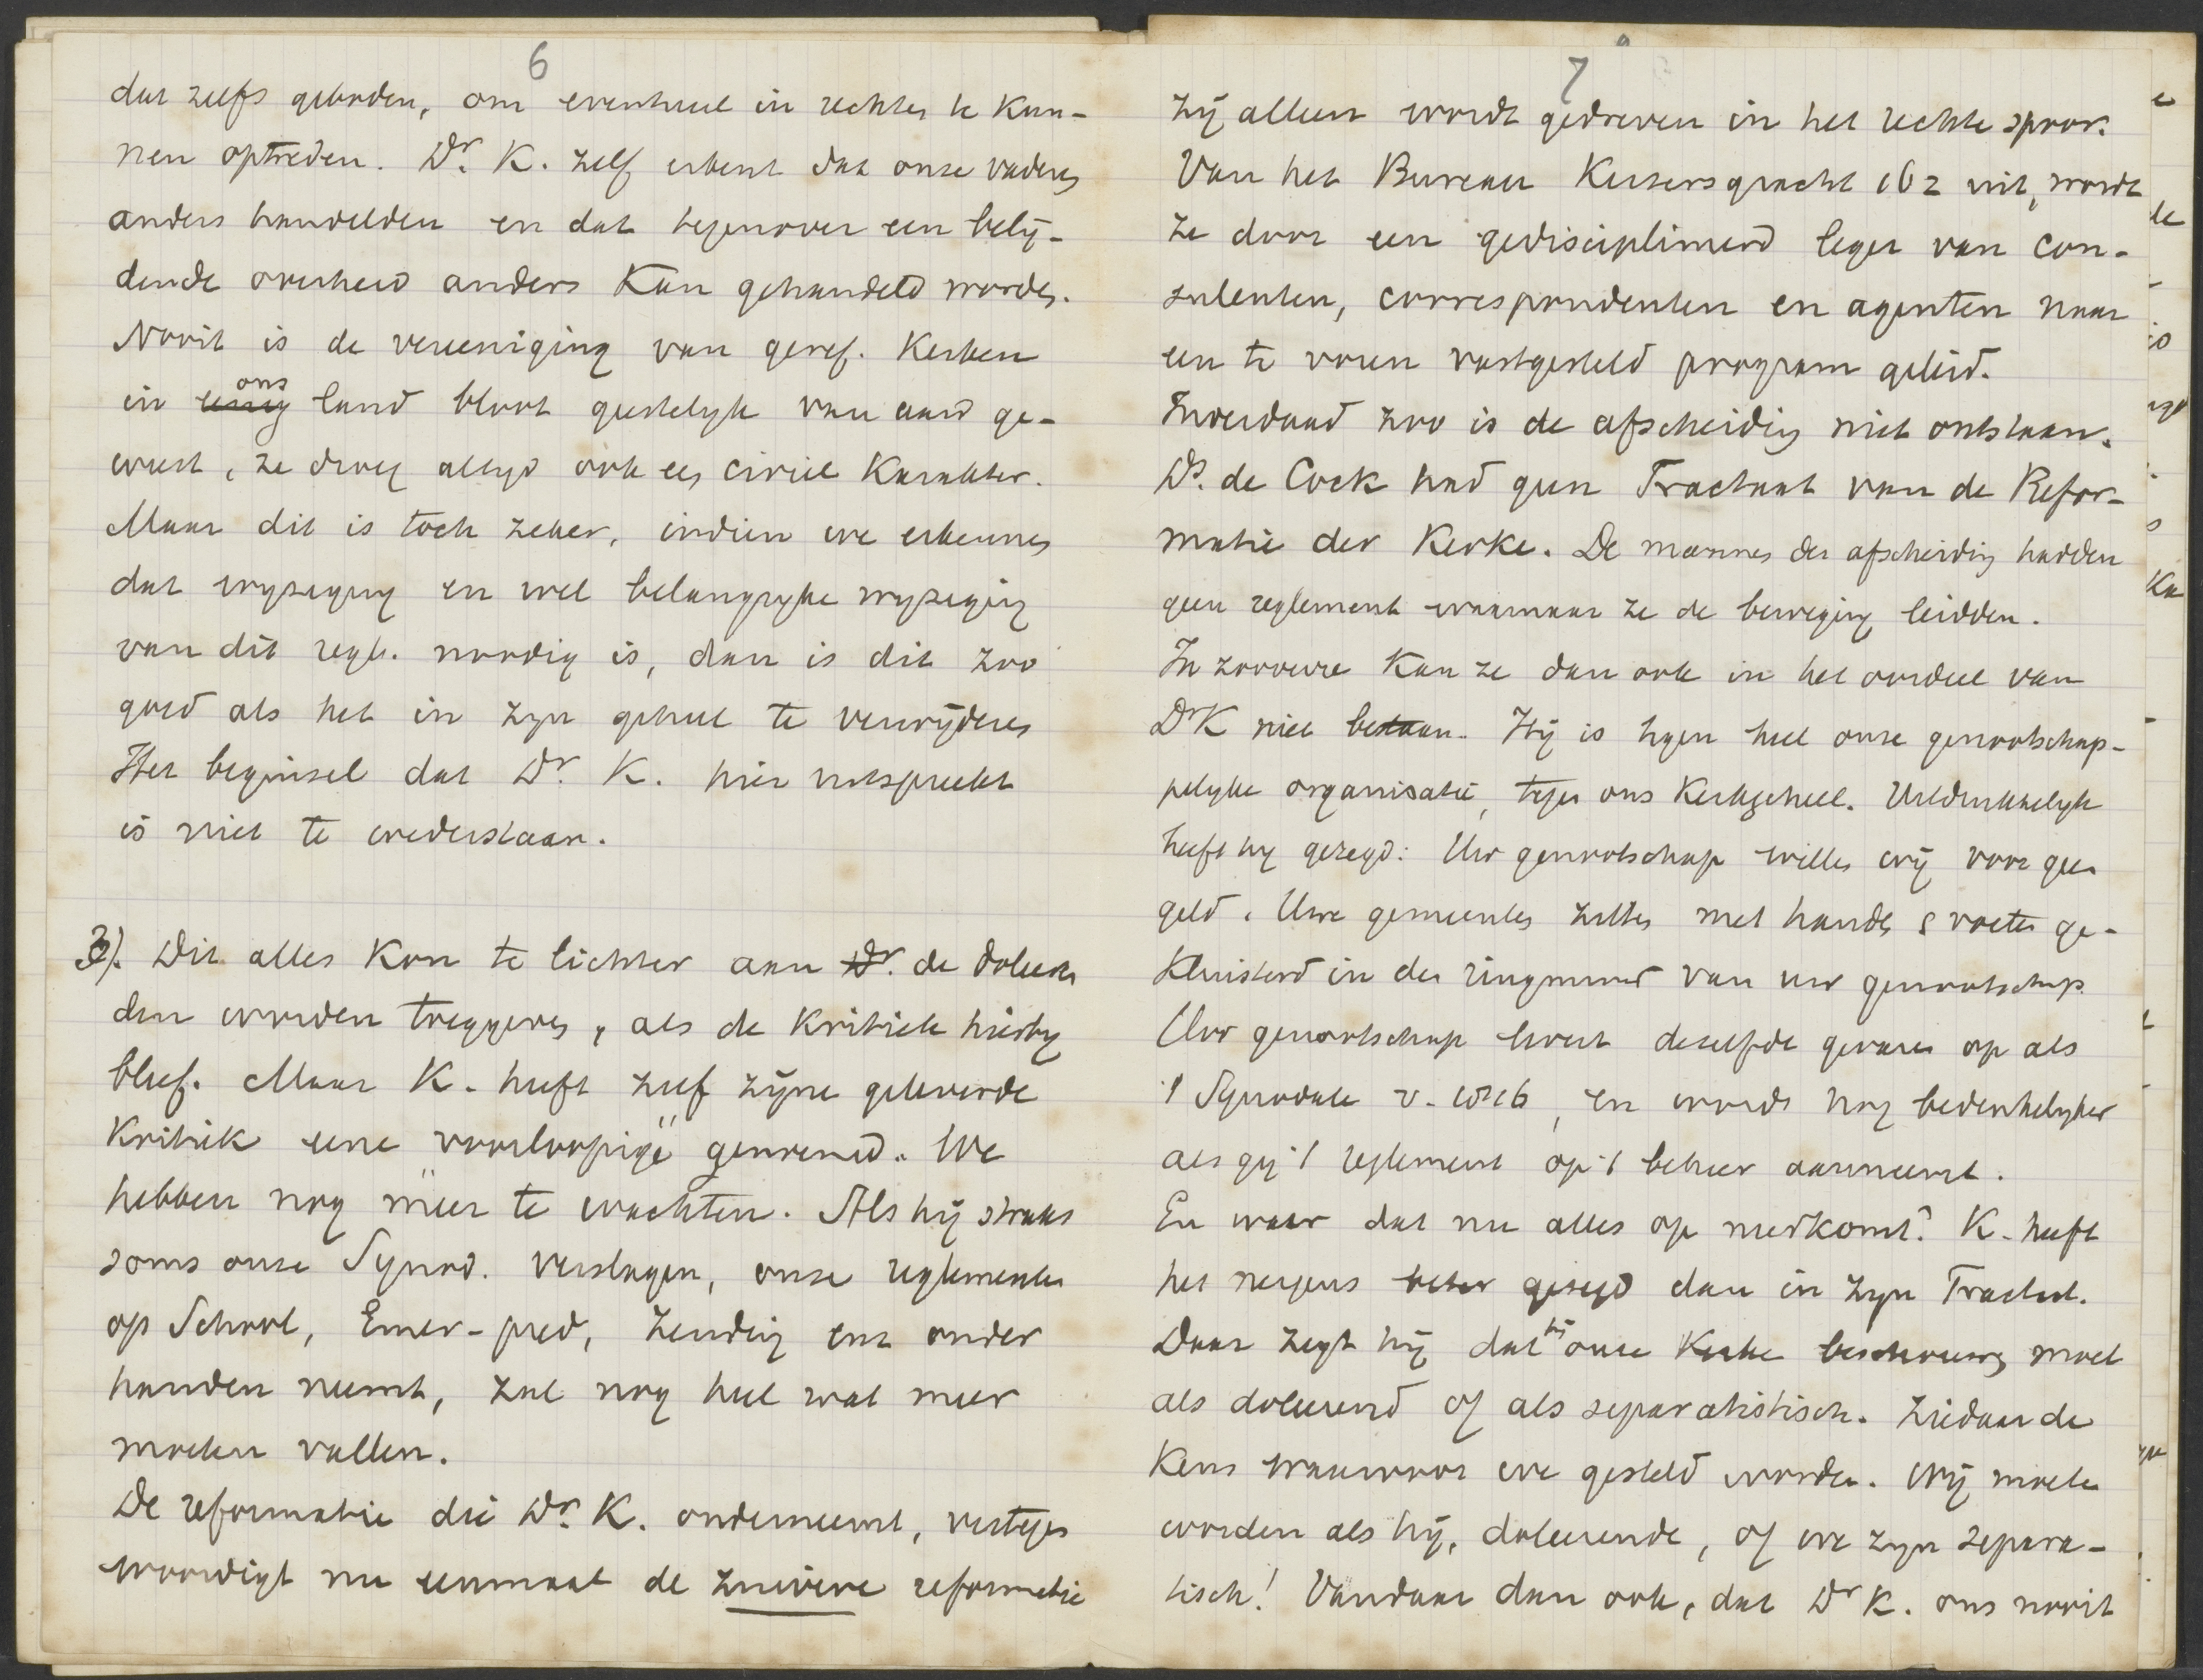 6
dat zelfs geboden, om eventueel in rechten te kun-
nen optreden. Dr. K. zelf erkent dat onze vaderen
anders handelden en dat tegenover een belij-
dende overheid anders kan gehandeld worden.
Nooit is de vereeniging van geref. Kerken
in ons land bloot geestelyk van aard ge-
weest, ze droeg altyd ook een civiel karakter.
Maar dit is toch zeker, indien we erkennen
dat wyziging en wel belangryke wyziging
van dit regl. noodig is, dan is dit zoo
goed als het in zyn geheel te verwijderen
Het beginsel dat Dr. K. hier uitspreekt
is niet te wederstaan.
3). Dit alles kon te lichter aan de doleeren
den worden toegegeven, als de kritiek hierby
bleef. Maar K. heeft zelf zijne geleverde
kritiek eene "voorloopige" genoemd. We
hebben nog meer te wachten. Als hij straks
soms onze Synod. verslagen, onze reglementen
op School, Emer-pred, Zending enz onder
handen neemt, zal nog heel wat meer
moeten vallen.
De reformatie die Dr. K. onderneemt, vertegen
woordigt nu eenmaal de zuivere reformatie
7
Zij alleen wordt gedreven in het rechte spoor.
Van het Bureau Keizersgracht 162 uit, wordt
ze door een gedisciplineerd leger van con-
sulenten, correspondenten en agenten naar
een te voren vastgesteld program geleid.
Inderdaad zoo is de afscheiding niet ontstaan.
Ds. de Cock had geen Tractaat van de Refor-
matie der Kerke. De mannen der afscheiding hadden
geen reglement waarnaar ze de beweging leidden.
In zooverre kan ze dan ook in het oordeel van
Dr K niet bestaan. Hij is tegen heel onze genootschap-
pelyke organisatie, tegen ons Kerkgeheel. Uitdrukkelyk
heeft hy gezegd: Uw genootschap willen wij voor geen
geld. Uwe gemeenten zitten met handen & voeten ge-
kluisterd in den ringmuur van uw genootschap.
Uw genootschap levert dezelfde gevaren op als
't Synodale v. 1816, en wordt nog bedenkelyker
als gij 't reglement op 't beheer aanneemt.
En waar dat nu alles op neerkomt? K. heeft
het nergens beter gezegd dan in zyn Tractaat.
Daar zegt hij dat hij onze Kerke beschouwen moet
als doleerend of als separatistisch. Ziedaar de
keus waarvoor we gesteld worden. Wij moeten
worden als hij, doleerende, of we zyn separa-
tisch! Vandaar dan ook, dat Dr K. ons nooit